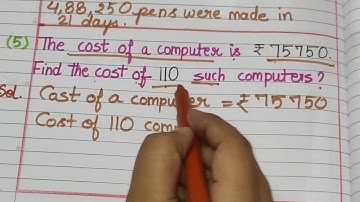 4,88,250 pens were made in
21 days.
(5) The cost of a computer is ₹75750.
Find the cost of 110 such computers?
Sol. Cost of a computer = ₹75750
Cost of 110 com